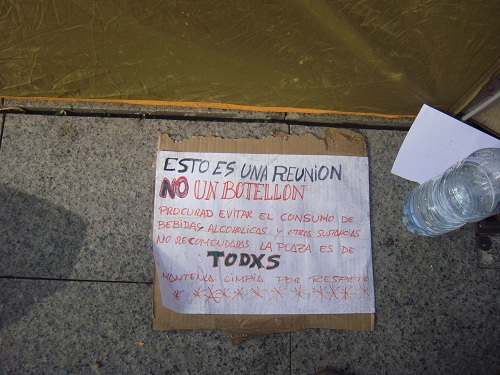 ESTO ES UNA REUNION
NO UN BOTELLON
PROCURAD EVITAR EL CONSUMO DE
BEBIDAS ALCOHOLICAS Y OTRAS SUSTANCIAS
NO RECOMENDADAS LA PLAZA ES DE
TODXS
MANTENLA LIMPIA POR RESPETO